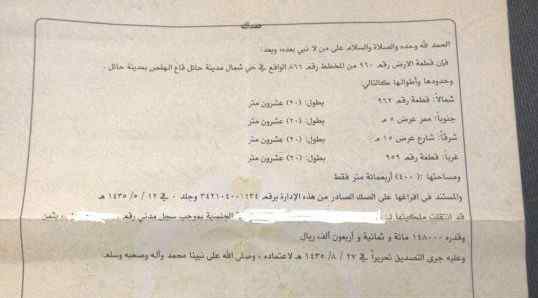 صك
الحمد لله وحده والصلاة والسلام على من لا نبي بعده، وبعد:
فإن قطعة الارض رقم ٩٦٠ من المخطط رقم ٨٦٦ الواقع في حي شمال مدينة حائل قاع الهلص بمدينة حائل .
وحدودها وأطوالها كالتالي:
شمالاً: قطعة رقم ٩٦٢ بطول: (٢٠) عشرون متر
جنوباً: ممر عرض ٥ م بطول: (٢٠) عشرون متر
شرقاً: شارع عرض ١٥ م بطول: (٢٠) عشرون متر
غرباً: قطعة رقم ٩٥٩ بطول: (٢٠) عشرون متر
ومساحتها :( ٤٠٠) أربعمائة متر فقط
والمستند في افراغها على الصك الصادر من هذه الإدارة برقم ٣٤٢١٠٤٠٠١٢٣٤ وجلد ٠ في ١٢ / ٥ / ١٤٣٥ هـ
قد انتقلت ملكيتها الجنسية بموجب سجل مدني رقم بثمن
وقدره ١٤٨٠٠٠ مائة و ثمانية و أربعون ألف ريال
وعليه جرى التصديق تحريراً في ٢٧ / ٨ / ١٤٣٥ هـ لاعتماده ، وصلى الله على نبينا محمد وآله وصحبه وسلم.